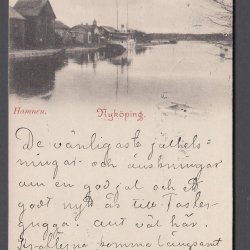 Hamnen.
Nyköping.
De vänligaste julhels-
ningar och önskningar
om en god jul och ett
godt nytt år till Faster-
gugga. Amt väl här.
Krallerna komma långsamt